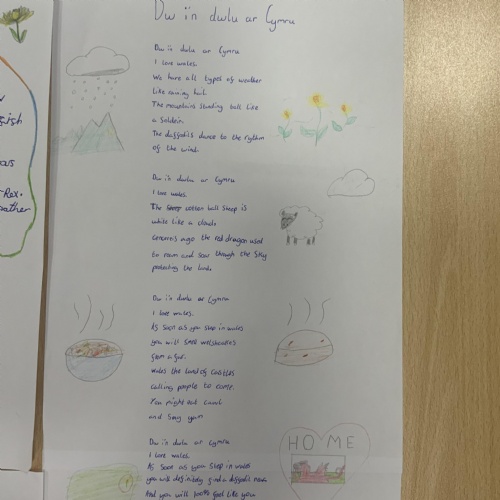 Dw i'n dwlu ar Cymru
Dw i'n dwlu ar Cymru
I love wales.
We have all types of weather
like raining hard
The mountains standing tall like
a soldein.
The daffodils dance to the rhythm
of the wind.
Dw i'n dwlu ar Cymru
I love wales.
The cotton ball sheep is
white like a clouds
ago the red dragon used
to roam and soar though the sky
protecting the land.
Dw i'n dwlu ar Cymru
I love wales.
As soon as you step in wales
you will smell welshcakes
from a far.
wales the land of castles
calling people to come.
You might eat cawl
and say yum
Dw i'n dwlu ar Cymru
I love wales
As soon as you step in wales
you will definitely find a daffodil
And you will feel like you
HOME